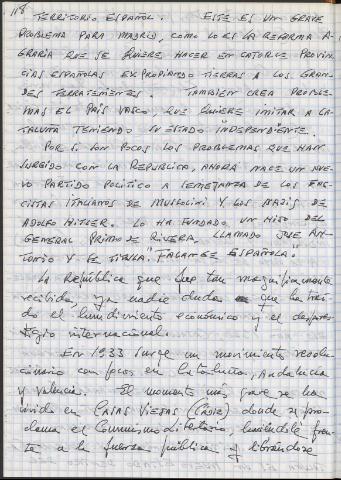 118
TERRITORIO ESPAÑOL. ESTE ES UN GRAVE
PROBLEMA PARA MADRID, COMO LO ES LA REFORMA A-
GRARIA QUE SE QUIERE HACER EN CATORCE PROVIN-
CIAS ESPAÑOLAS EXPROPIANDO TIERRAS A LOS GRAN-
DES TERRATENIENTES. TAMBIEN CREA PROBLE-
MAS EL PAÍS VASCO, QUE QUIERE IMITAR A CA-
TALUÑA TENIENDO SU ESTADO INDEPENDIENTE.
POR SI SON POCOS LOS PROBLEMAS QUE HAN
SURGIDO CON LA REPUBLICA, AHORA NACE UN NUE-
VO PARTIDO POLITICO A SEMEJANZA DE LOS FAS-
CISTAS ITALIANOS DE MUSSOLINI Y LOS NAZIS DE
ADOLFO HITLER. LO HA FUNDADO UN HIJO DEL
GENERAL PRIMO DE RIVERA, LLAMADO JOSE AN-
TONIO Y SE TITULA "FALANGE ESPAÑOLA".
La República que fue tan magníficamente
recibida, ya nadie duda que ha traí-
do el hundimiento económico y el despres-
tigio internacional.
En 1933 surge un movimiento revolu-
cionario con focos en Cataluña, Andalucía
y Valencia. El momento más grave se ha
vivido en CASAS VIEJAS (CADIZ) donde se pro-
clama el Comunismo libertario, haciéndole fren-
te a la fuerza pública y librándose